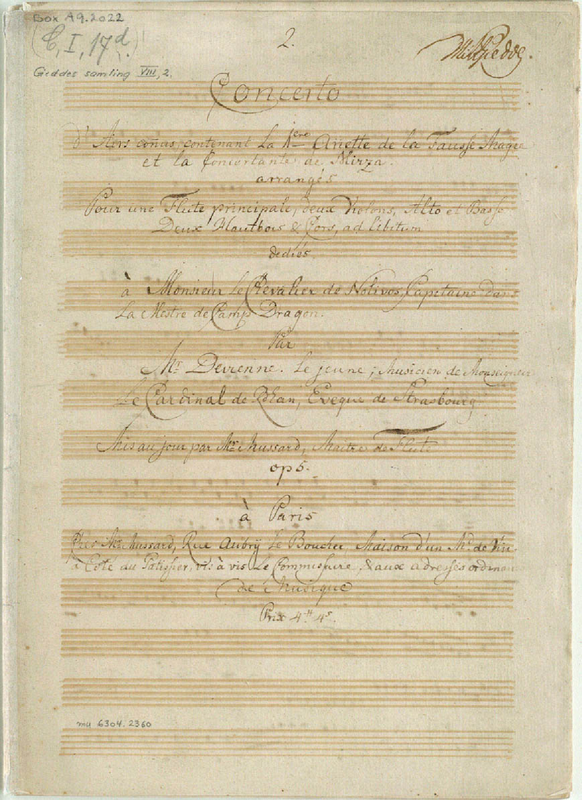 Box A9.2022
(C, I, 17d)
Gieddes samling VIII, 2.
2.
WHRGiedde.
Concerto
d'Airs connus, contenant La 1ere Ariette de la Fausse Magie
et la Concertante de Mirza.
arrangés
Pour une Flute principale, deux Violons, Alto et Basse
Deux Hautbois & Cors, ad libitum
dediés
à Monsieur le Chevalier de Capitaine dans
La Mestre de Camp Dragon.
Par
Mr. Devienne. Le jeune; Musicien de Monseigneur
Le Cardinal de Rohan, Eveque de Strasbourg
Mis au jour par Mr. Mussard, Maitre de Flute
op 5.
à Paris
Chez Mr. Mussard, Rue Aubry le Boucher Maison d'un Md. de Vin
à Coté du Patissier, vis à vis Le Commissaire, & aux adresses ordinair
de Musique
Prix 4.tt 4s.
mu 6304.2360